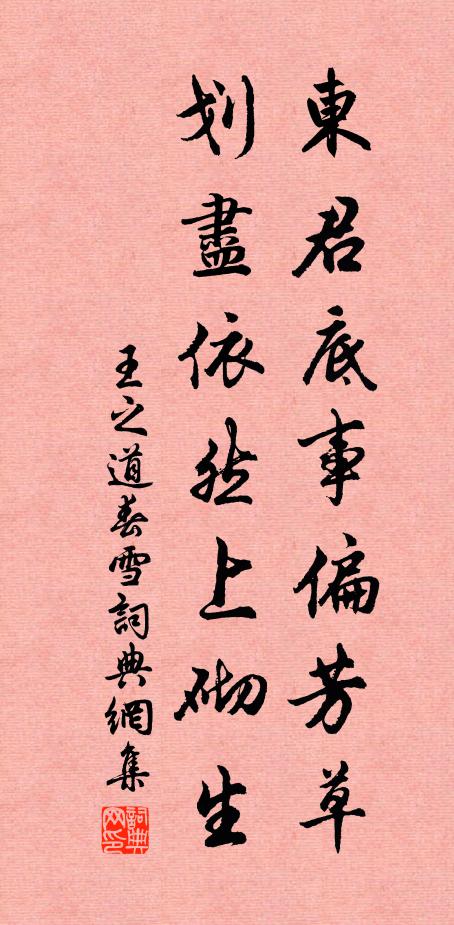 東君底事偏芳草
划盡依然上砌生
王之道春雪詞典網集
詞典网印